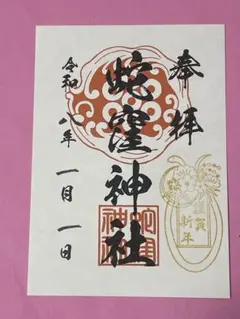 奉拝
蛇窪神社
令和八年
一月一日
蛇窪
神社
賀
新年